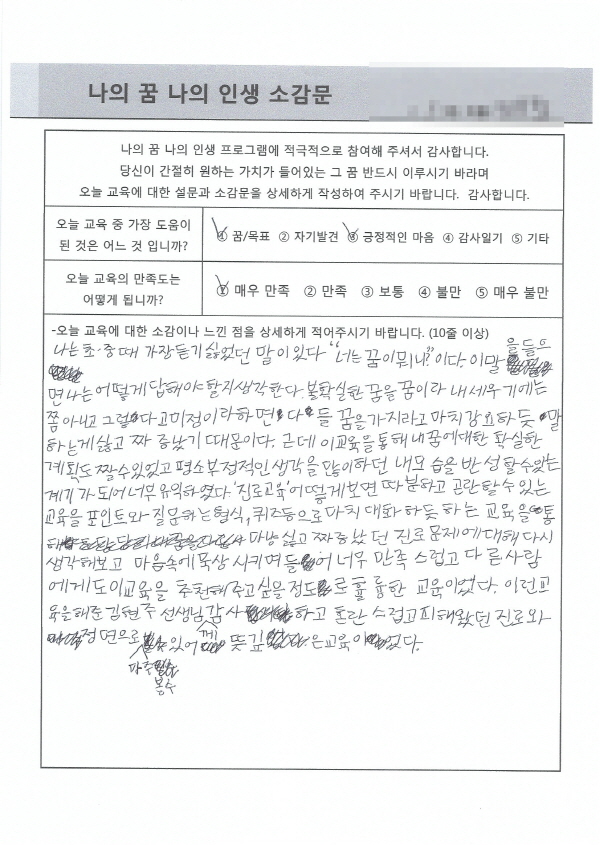 나의 꿈 나의 인생 소감문
나의 꿈 나의 인생 프로그램에 적극적으로 참여해 주셔서 감사합니다.
당신이 간절히 원하는 가치가 들어있는 그 꿈 반드시 이루시기 바라며
오늘 교육에 대한 설문과 소감문을 상세하게 작성하여 주시기 바랍니다. 감사합니다.
오늘 교육 중 가장 도움이
된 것은 어느 것 입니까?
① 꿈/목표 ② 자기발견 ③ 긍정적인 마음 ④ 감사일기 ⑤ 기타
오늘 교육의 만족도는
어떻게 됩니까?
① 매우 만족 ② 만족 ③ 보통 ④ 불만 ⑤ 매우 불만
-오늘 교육에 대한 소감이나 느낀 점을 상세하게 적어주시기 바랍니다. (10줄 이상)
나는 초·중때 가장듣기싫었던 말이있다 "너는 꿈이뭐니?"이다. 이말을들으
면나는어떻게답해야할지생각한다. 불확실한 꿈을꿈이라 내세우기에는
쫌아니고 그렇다고미정이라하면 다들 꿈을가지라고마치강요하듯 말
하는게싫고 짜증났기때문이다. 근데 이교육을통해내꿈에대한 확실한
계획도 짤수있었고 평소부정적인생각을많이하던 내모습을반성할수있는
계기가되어너무유익하였다. '진로교육'어떻게보면 따분하고 곤란할수있는
교육을포인트와 질문하는형식, 퀴즈등으로마치대화하듯 하는 교육을 통
해 마냥싫고짜증났던 진로문제에대해다시
생각해보고 마음속에묵상시키면들어 너무 만족스럽고 다른사람
에게도이교육을 추천해주고싶을정도로 훌륭한 교육이었다. 이런교
육을해준김현주선생님감사 하고 혼란스럽고피해왔던진로와
정면으로 마주 볼수 있어 께 뜻깊은교육이었다.